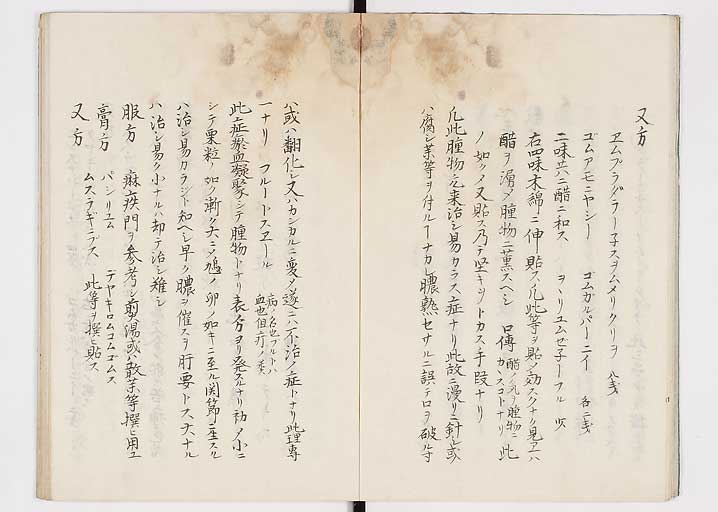 又方
ヱムプラグラー子スヲムメリクリヲ 八戔
ゴムアモニヤシー ゴムガルバーニイ 各二戔
二味共ニ醋ニ和ス
右四味木綿ニ伸貼ス凡此等ヲ貼シ効スクナク見ユハ
醋ヲ濁メ腫物ニ薫スヘシ 口傳 醋ノ気ヲ腫物ニカハスコトナリ 此
ノ如クメ又貼ス乃テ堅キヲトカス手段ナリ
凡此腫物之来治シ易カラス症ナリ此故ニ漫リニ針シ或
ハ腐シ薬等ヲ付ルヿナカレ膿熟セサルニ誤テ口ヲ破ル寸
ハ或ハ翻化シ又ハカンカルニ変メ遂ニハ不治ノ症トナリ此理専
一ナリ フルートスエール 病ノ名也ブルトハ血也但疔ノ類
此症瘀血凝聚シテ腫物トナリ表分ヨリ発スルナリ初メ小ニ
シテ栗粒ノ如ク漸々大ニメ鳩ノ卵ノ如キニ至ル関節ニ在スル
ハ治シ易カラシト知ヘシ早ク膿ヲ催スヲ肝要トス大ナル
ハ治シ易ク小ナルハ却テ治シ難シ
服方 麻疾門ヲ参考シ煎湯或ハ散薬等撰ヒ用ユ
膏方 パシリユム テヤキロムコムゴムス
ムスラギニブス 此等ヲ撰ヒ貼ス
又方